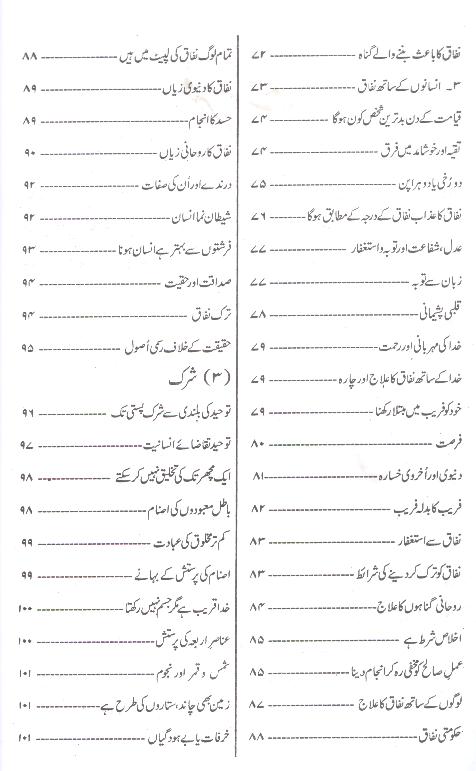 نفاق کا باعث بننے والے گناہ ---------------- ۷۲
۳۔ انسانوں کے ساتھ نفاق ---------------- ۷۳
قیامت کے دن بدترین شخص کون ہوگا ---------------- ۷۴
تقیہ اور خوشامد میں فرق ---------------- ۷۴
دو رُخی یا دوہراپن ---------------- ۷۵
نفاق کا عذاب نفاق کے درجہ کے مطابق ہوگا ---------------- ۷۶
عدل، شفاعت اور توبہ و استغفار ---------------- ۷۷
زبان سے توبہ ---------------- ۷۷
قلبی پشیمانی ---------------- ۷۸
خدا کی مہربانی اور رحمت ---------------- ۷۹
خدا کے ساتھ نفاق کا علاج اور چارہ ---------------- ۷۹
خود کو فریب میں مبتلا رکھنا ---------------- ۷۹
فرصت ---------------- ۸۰
دنیوی اور اُخروی خسارہ ---------------- ۸۱
فریب کا بدلہ فریب ---------------- ۸۲
نفاق سے استغفار ---------------- ۸۳
نفاق کو ترک کر دینے کی شرائط ---------------- ۸۳
روحانی گناہوں کا علاج ---------------- ۸۴
اخلاص شرط ہے ---------------- ۸۵
عمل صالح کو مخفی رہ کر انجام دینا ---------------- ۸۵
لوگوں کے ساتھ نفاق کا علاج ---------------- ۸۷
حکومتی نفاق ---------------- ۸۸
تمام لوگ نفاق کی لپیٹ میں ہیں ---------------- ۸۸
نفاق کا دنیوی زیاں ---------------- ۸۹
حسد کا انجام ---------------- ۸۹
نفاق کا روحانی زیاں ---------------- ۹۰
درندے اور اُن کی صفات ---------------- ۹۲
شیطان نما انسان ---------------- ۹۲
فرشتوں سے بہتر ہے انسان ہونا ---------------- ۹۳
صداقت اور حقیت ---------------- ۹۴
ترک نفاق ---------------- ۹۴
حقیقت کے خلاف رسمی اُصول ---------------- ۹۵
(۳) شرک
توحید کی بلندی سے شرک پستی تک ---------------- ۹۶
توحید تقاضائے انسانیت ---------------- ۹۷
ایک مچھر تک کی تخلیق نہیں کر سکتے ---------------- ۹۸
باطل معبودوں کی اصنام ---------------- ۹۸
کم تر مخلوق کی عبادت ---------------- ۹۹
اصنام کی پرستش کے بہانے ---------------- ۹۹
خدا قریب ہے مگر جسم نہیں رکھتا ---------------- ۱۰۰
عناصر اربعہ کی پرستش ---------------- ۱۰۰
شمس و قمر اور نجوم ---------------- ۱۰۱
زمین بھی چاند، ستاروں کی طرح ہے ---------------- ۱۰۱
خرفات یا بے ہودگیاں ---------------- ۱۰۱